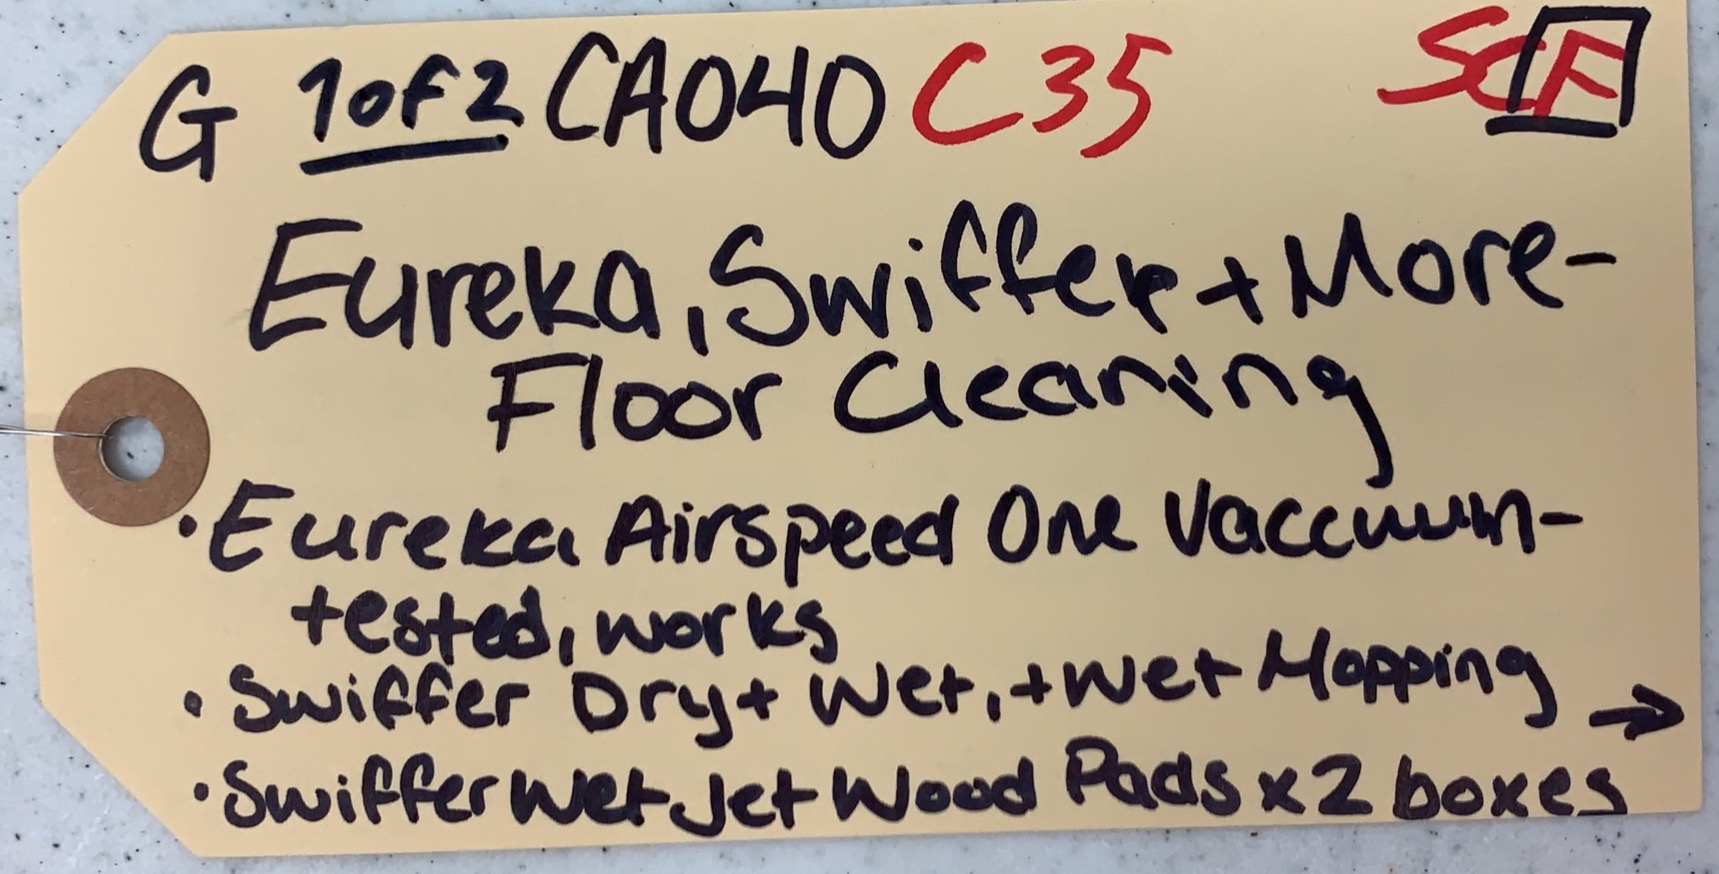 G 1 of 2 CA040 C35 SCF
Eureka, Swiffer + More-
Floor Cleaning
• Eureka Airspeed One Vaccuum-
tested, works
• Swiffer Dry + Wet, + Wet Mopping →
• Swiffer Wet Jet Wood Pads x 2 boxes